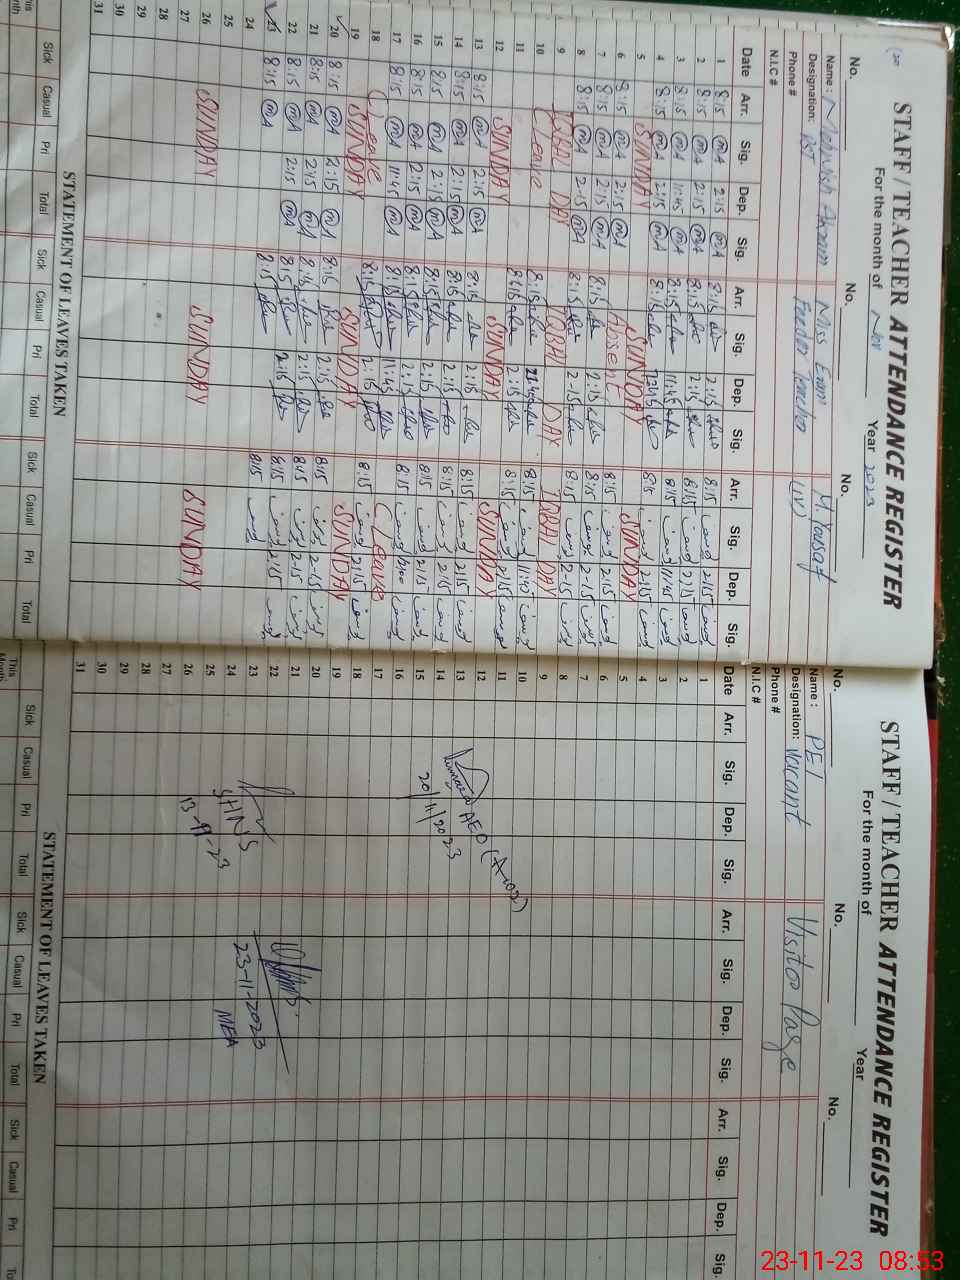 STAFF / TEACHER ATTENDANCE REGISTER
For the month of Nov Year 2023
No. No. No.
Name : Mehwish Akram Miss Erum M. Yousaf
Designation: PST Feeder Teacher (IV)
Phone #
N.I.C #
Date Arr. Sig. Dep. Sig. Arr. Sig. Dep. Sig. Arr. Sig. Dep. Sig.
1 8:15 MA 2:15 MA 8:15 2:15 8:15 2:15
2 8:15 MA 2:15 MA 8:15 2:15 8:15 2:15
3 8:15 MA 11:45 MA 8:15 11:45 8:15 11:45
4 8:15 MA 2:15 MA 8:15 2:15 8:15 2:15
5 SUNDAY SUNDAY SUNDAY
6 8:15 MA 2:15 MA Absent 8:15 2:15
7 8:15 MA 2:15 MA 8:15 2:15 8:15 2-15
8 8:15 MA 2:15 MA 8:15 2-15 8:15 2-15
9 IQBAL DAY IQBAL DAY IQBAL DAY
10 C Leave 8:15 8:15 11:40
11 8:15 2:15 8:15 2:15
12 SUNDAY SUNDAY SUNDAY
13 8:15 MA 2:15 MA 8:15 2:15 8:15 2:15
14 8:15 MA 2:15 MA 8:15 2:15 8:15 2:15
15 8:15 MA 2:15 MA 8:15 2:15 8:15 2:15
16 8:15 MA 2:15 MA 8:15 2:15 8:15
17 8:15 MA 11:45 MA 8:15 11:45 C Leave
18 C Leave 8:15 2:15 8:15 2:15
19 SUNDAY SUNDAY SUNDAY
20 8:15 MA 2:15 MA 8:15 2:15 8:15 2:15
21 8:15 MA 2:15 MA 8:15 2:15 8:15 2-15
22 8:15 MA 2:15 MA 8:15 2:15 8:15 2:15
23 8:15 MA 8:15 8:15
24
25
26 SUNDAY SUNDAY SUNDAY
27
28
29
30
31
STATEMENT OF LEAVES TAKEN
Sick Casual Pri Total Sick Casual Pri Total Sick Casual Pri Total
STAFF / TEACHER ATTENDANCE REGISTER
For the month of Year
No. No. No.
Name : PET Visitor Page
Designation: Vacant
Phone #
N.I.C #
Date Arr. Sig. Dep. Sig. Arr. Sig. Dep. Sig. Arr. Sig. Dep. Sig.
1
2
3
4
5
6
7
8
9
10
11
12
13
14
15
16
17
18
19
20
21
22
23
24
25
26
27
28
29
30
31
AEO
20/11/2023
SHNS
13-11-23
23-11-2023
MEA
STATEMENT OF LEAVES TAKEN
This Month Sick Casual Pri Total Sick Casual Pri Total Sick Casual Pri
23-11-23 08:53